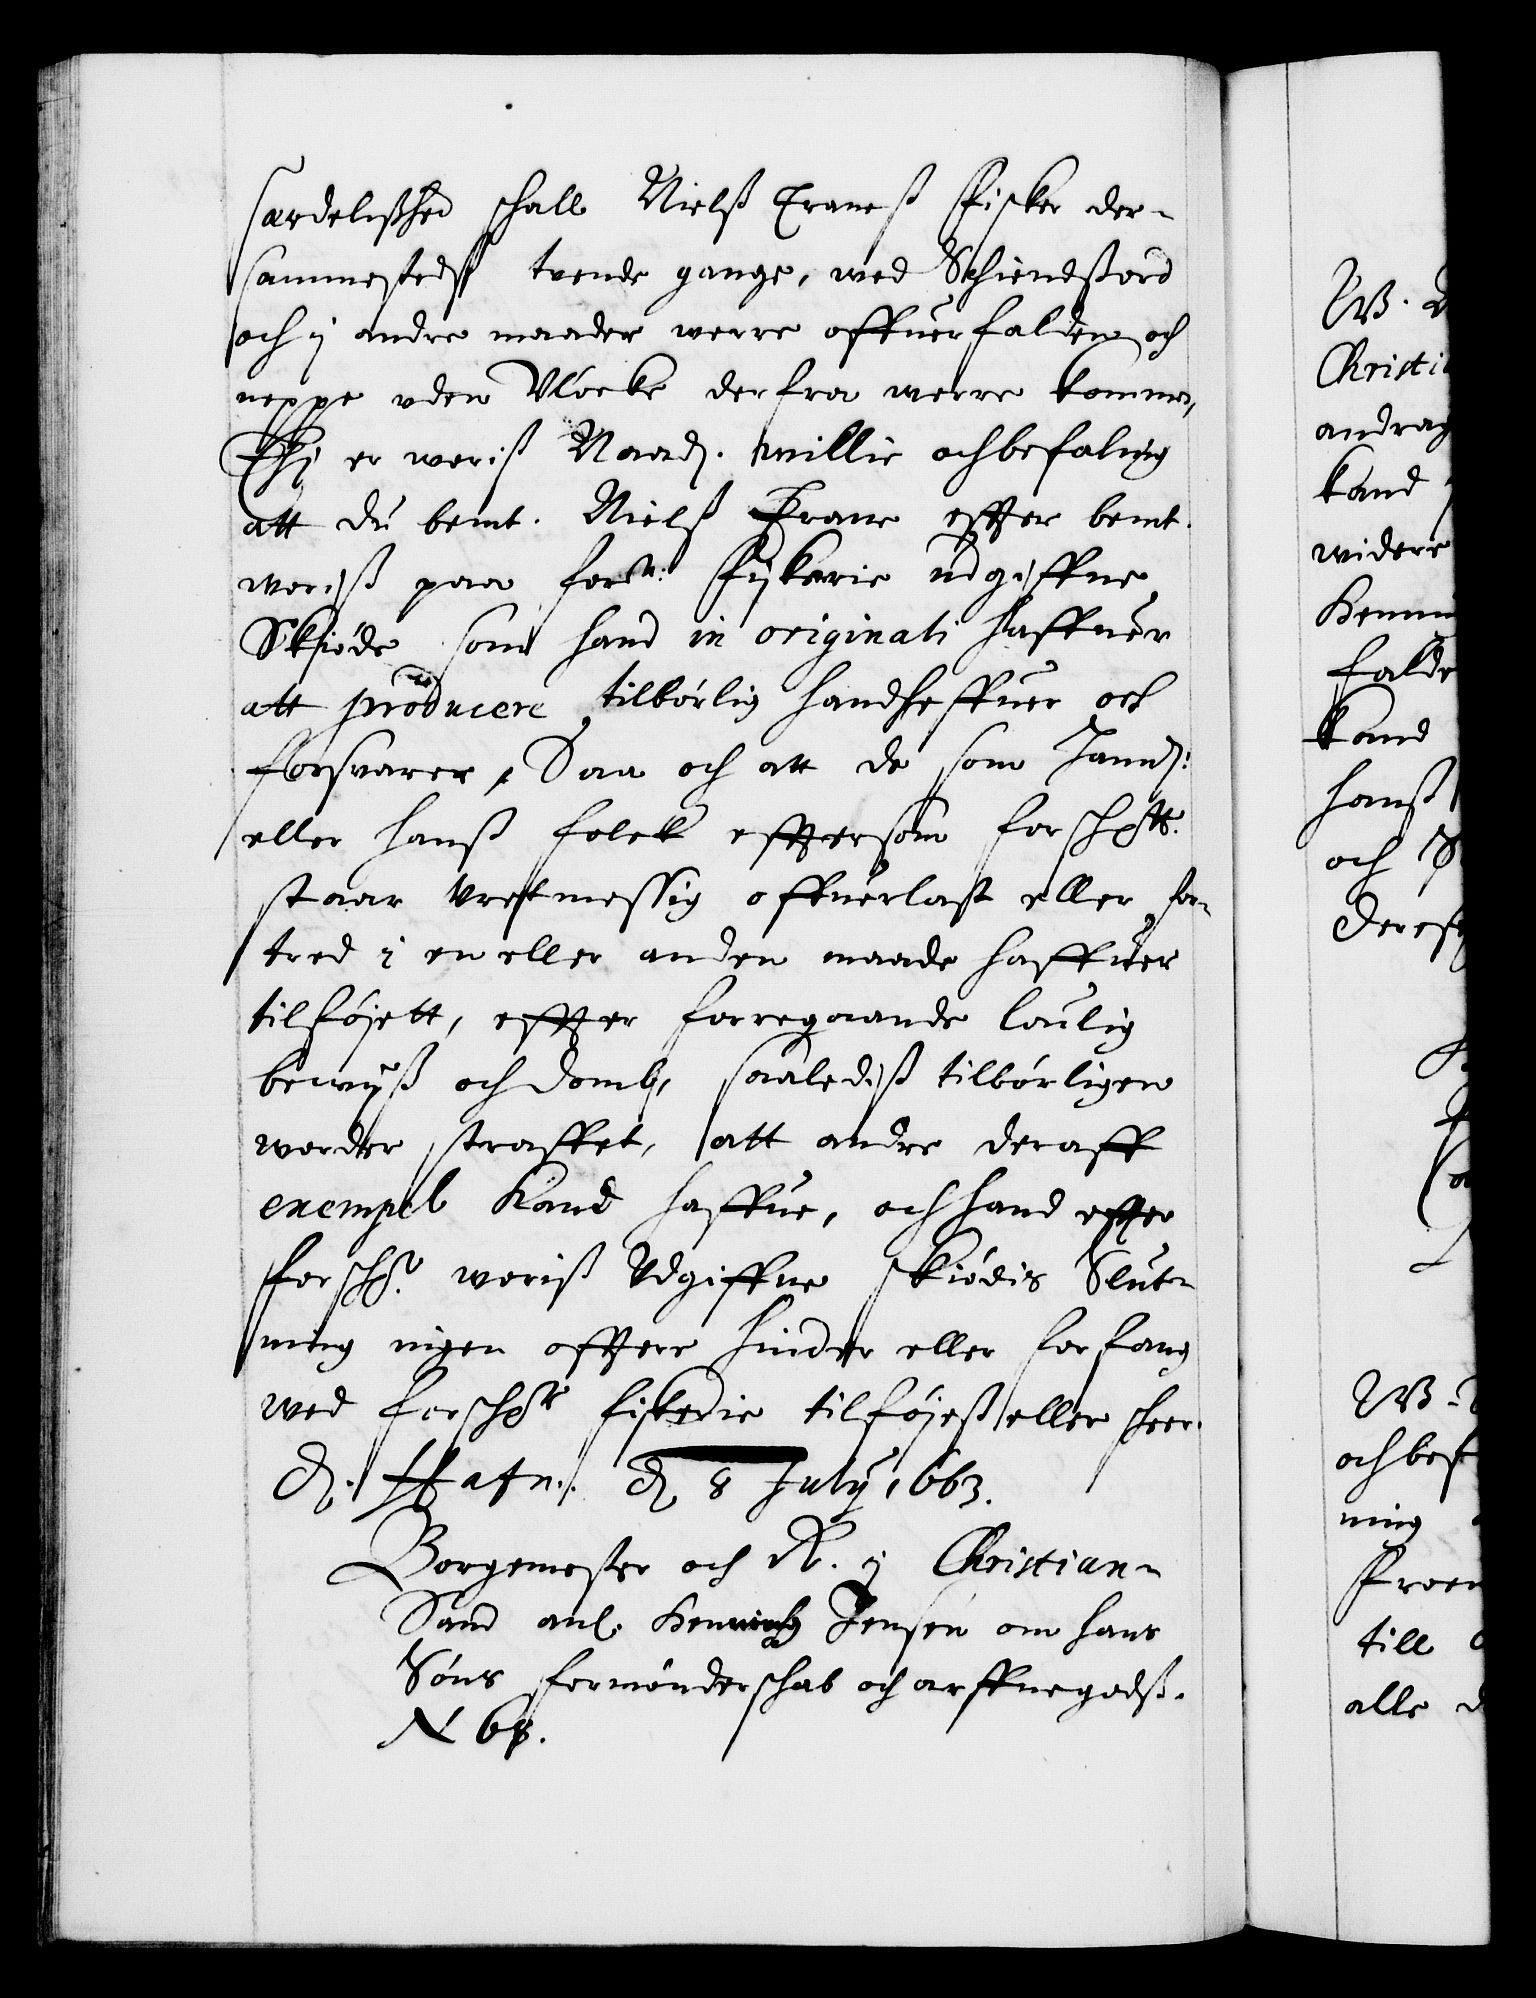 særdelißhed schall Nielß Traneß Fisker der-
sammestedß tvende gange, med Schiendßord
och ÿ andre maader werre offuerfalden och
neppe uden Vlöcke derfra werre kommen,
Thi er woriß Naad. willie och befaling
att du bemt. Nielß Trane effter bemt.
woriß paa forn: Fiskerie udgiffne
Skiöde som hand in originali haffuer
att producere tilbörlig handheffuer och
forsvarer, Saa och att de som Jannd:
eller hanß folck efftersom forschrtt.
staar uretmessig offuerlast eller for-
tred i en eller anden maade haffuer
tilföjett, effter forregaaende loulig
bewÿß och domb, saalediß tilbörligen
worder straffet, att andre deraff
exempel Kand haffue, och hand effter
forschr. woriß Udgiffne Skiödis Slut-
ning ingen offtere hinder eller forfang
wed forschr fiskerie tilföjeß eller scheer.
D. Hafn: d 8 July 1663.
Borgemester och R. ÿ Christian-
Sand anl. Henrich Jensen om hans
Söns formönderschab och arffuegodß.
N 68.
W.
Christi
andrag
kand
widere
falde
kand
hanß
och
W.
och bef
ning
till
alle d